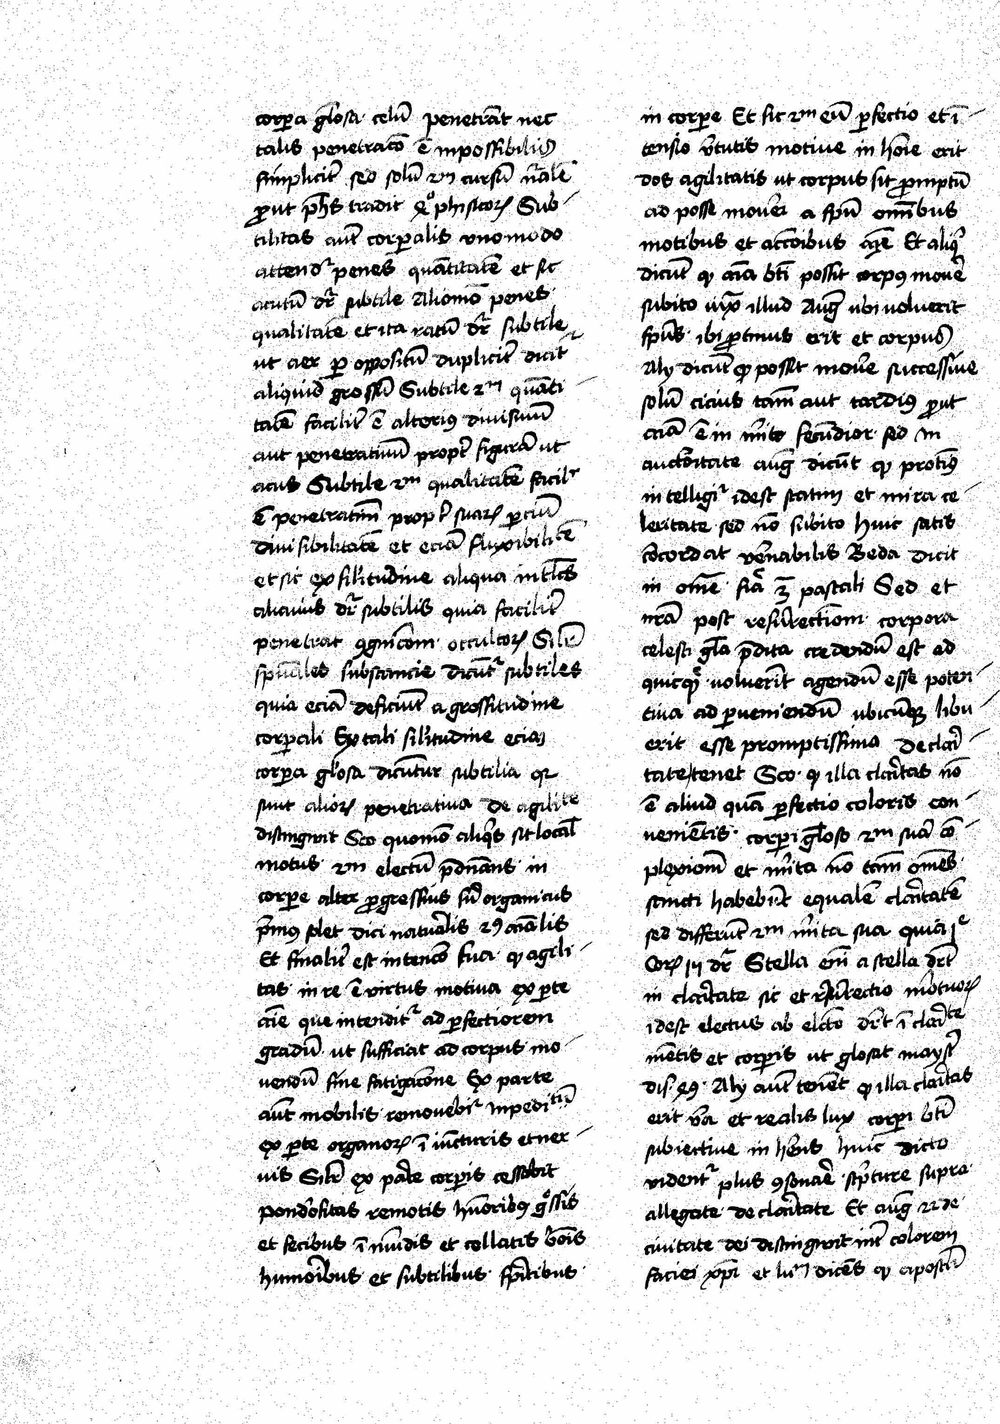 corpa glosa celū penetrāt nec
talis penetracō ē inpossibilis
simplicit̄ sed solū 2m cursū nr̄alē
put phs tradit 4o phisicorꝝ Sub-
tilitas aut̄ corpalis uno modo
attendr̄ penes quātitatē et sic
acutū dr̄ subtile Aliomō penes
qualitatē et ita ratū dr̄ subtile
ut aer p oppositū duplicit̄ dicit̄
aliquid grossū Subtile 2m quāti-
tatē facilit̄ ē alterius diuisiuū
aut penetratiuū propt̄ figurā ut
acus Subtile 2m qualitatē facilr
ē penetratiuū propt̄ suarꝝ parciū
diuisibilitatē et eciā fluxibilitatē
et sic ex silitudine aliqua intlcs
alicuius dr̄ subtilis quia facilit̄
penetrat ꝯgnicōem occultorꝝ Silr̄
spūales substancie dicūtr̄ subtiles
quia eciā deficiūt a grossitudine
corpali Ex tali silitudine eciam
corpa glosa dicūtur subtilia qr
sunt aliorꝝ penetratiua De agilite
distingwit Sco quomō aliqs sit localis
motus 2m electū pdnāns in
corpe alter pgressiuus sm organicus
pmus plet dici naturalis 2us aīalis
Et finalit̄ est intencō sua qꝫ agili-
tas in re ē virtus motiua ex pte
aīe que intenditr̄ ad pfectiorem
gradū ut sufficiat ad corpus mo-
uendū sine fatigacōne Ex parte
aūt mobilis remouebir̄ inpeditiū
ex pte organorꝝ ī iūcturis et ner-
uis Silr̄ ex pate corpis cessabit
pondositas remotis hūoribus gossis
et fecibus ī mūdis et collatis bōis
humoribus et subtilibus spitibus
in corpe Et sic 2m eū pfectio et ī-
tensio vtutis motiue in hōie erit
dos agilitatis ut corpus sit pmptū
ad posse moueri a spū omībus
motibus et accōibus aīe Et aliqi
dicūt qꝫ aīa bti possit corpus mouere
subito iuxa illud Aug ubi voluerit
spūs ibi ptinus erit et corpus
Aly dicūt qꝫ possit mouere successiue
solū cicius tam̄ aut tardius put
aīa ē in mito fecūdior sed in
auctoritate aug dicūt qꝫ protius
intelligir̄ idest statim et mira ce-
leritate sed nō subito huic satis
cōcordat venabilis Beda dicit
in omē pastali Sed et
nr̄a post resurrectiom corpora
celesti gla pdita credendū est ad
quicqꝫ voluerit agendū esse poten-
tiua ad pueniendū ubicūqꝫ libu-
erit esse promptissima De clari-
tate tenet Sco qꝫ illa claritas nō
ē aliud quā pfectio coloris con-
uenietis corpi gloso 2m suā cō-
plexionē et mita nō tam̄ omēs
sancti habebūt equalē claritatē
sed differūt 2m mita sua quia 1a
Corꝝ 15 dr̄ Stella em̄ a stella drt
in claritate sic et resurrectio mortuorꝝ
idest electus ab elcto drt ī claritate
mētis et corpis ut glosat mayst̄
dis 49 Aly aut̄ tenēt qꝫ illa claritas
erit va et realis lux corpi bti
subiectiue in hēns huic dicto
videntr̄ plus ꝯsonare sptture supra
allegate de claritate Et aug 22 de
ciuitate dei distingwit int̄ colorem
faciei xpi et lum dicēs qꝫ apostoli